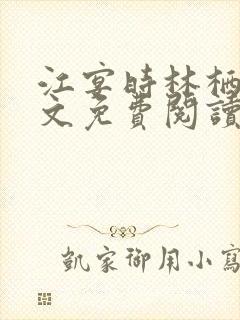 江宴時林栖
文免費閱讀
凱家御用小寫